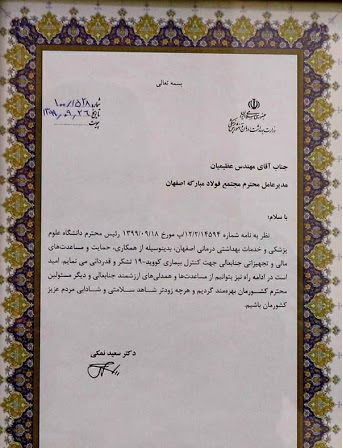 بسمه تعالی
شماره ۱۰۰/۱۵۲۸
تاریخ ۱۳۹۹.۰۹.۲۶
پیوست
جناب آقای مهندس عظیمیان
مدیرعامل محترم مجتمع فولاد مبارکه اصفهان
با سلام؛
نظر به نامه شماره ۱۲/۲/۱۴۵۹۴/پ مورخ ۱۳۹۹/۰۹/۱۸ رئیس محترم دانشگاه علوم
پزشکی و خدمات بهداشتی درمانی اصفهان، بدینوسیله از همکاری، حمایت و مساعدت‌های
مالی و تجهیزاتی جنابعالی جهت کنترل بیماری کووید-۱۹ تشکر و قدردانی می نمایم. امید
است در ادامه راه نیز بتوانیم از مساعدت‌ها و همدلی‌های ارزشمند جنابعالی و دیگر مسئولین
محترم کشورمان بهره‌مند گردیم و هرچه زودتر شاهد سلامتی و شادابی مردم عزیز
کشورمان باشیم.
دکتر سعید نمکی